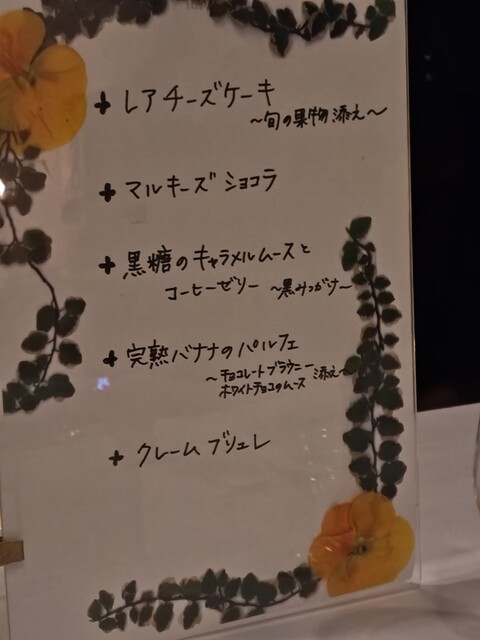 + レアチーズケーキ
～旬の果物添え～
+ マルキーズ ショコラ
+ 黒糖のキャラメルムースと
コーヒーゼリー ～黒みつがけ～
+ 完熟バナナのパルフェ
～チョコレートブラウニー
ホワイトチョコのムース 添え～
+ クレームブリュレ